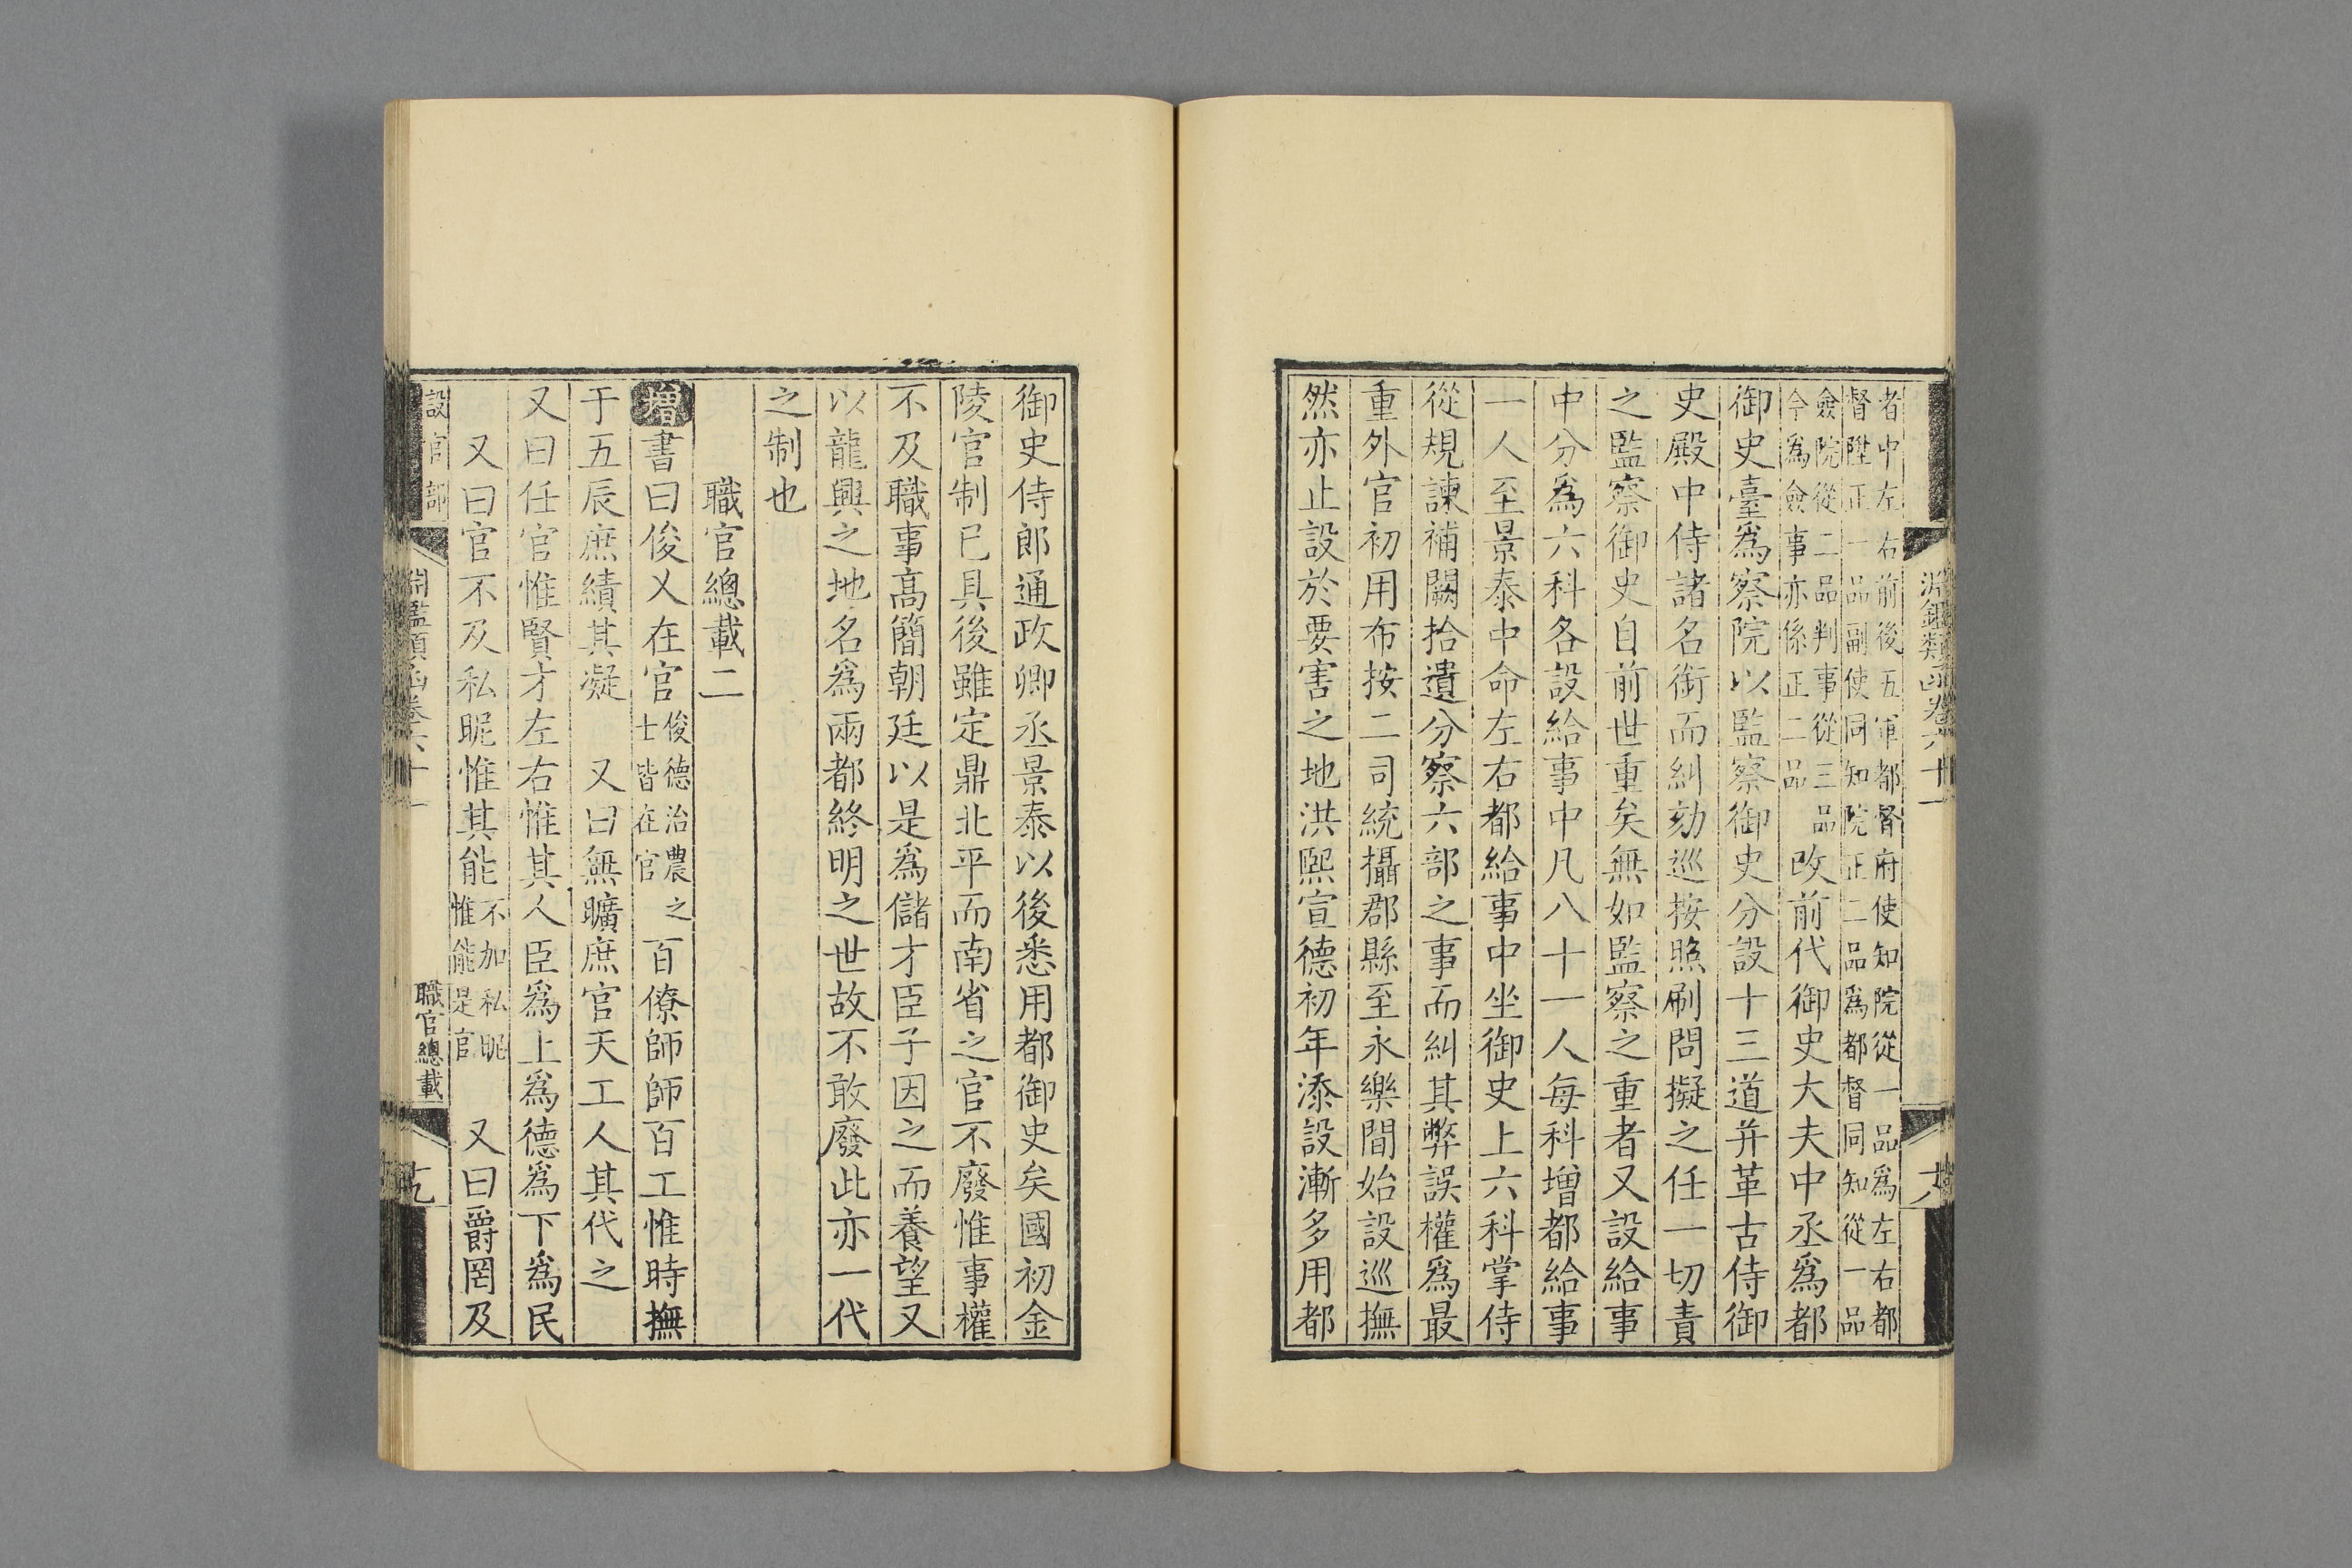 淵鑑類函卷六十一 十八
者中左右前後五軍都督府使知院從一品爲左右都
督陞正一品副使同知院正二品爲都督同知從一品
僉院從二品判事從三品
今爲僉事亦係正二品
改前代御史大夫中丞爲都
御史臺爲察院以監察御史分設十三道并革古侍御
史殿中侍諸名銜而糾劾巡按照刷問擬之任一切責
之監察御史自前世重矣無如監察之重者又設給事
中分爲六科各設給事中凡八十一人每科增都給事
一人至景泰中命左右都給事中坐御史上六科掌侍
從規諫補闕拾遺分察六部之事而糾其弊誤權爲最
重外官初用布按二司統攝郡縣至永樂間始設巡撫
然亦止設於要害之地洪熙宣德初年添設漸多用都
御史侍郎通政卿丞景泰以後悉用都御史矣國初金
陵官制已具後雖定鼎北平而南省之官不廢惟事權
不及職事高簡朝廷以是爲儲才臣子因之而養望又
以龍興之地名爲兩都終明之世故不敢廢此亦一代
之制也
職官總載二
增書曰俊乂在官
俊德治農之
士皆在官
百僚師師百工惟時撫
于五辰庶績其凝　又曰無曠庶官天工人其代之
又曰任官惟賢才左右惟其人臣爲上爲德爲下爲民
又曰官不及私昵惟其能
不加私昵
惟能是官
又曰爵罔及
設官部 淵鑑類函卷六十一 職官總載 十九